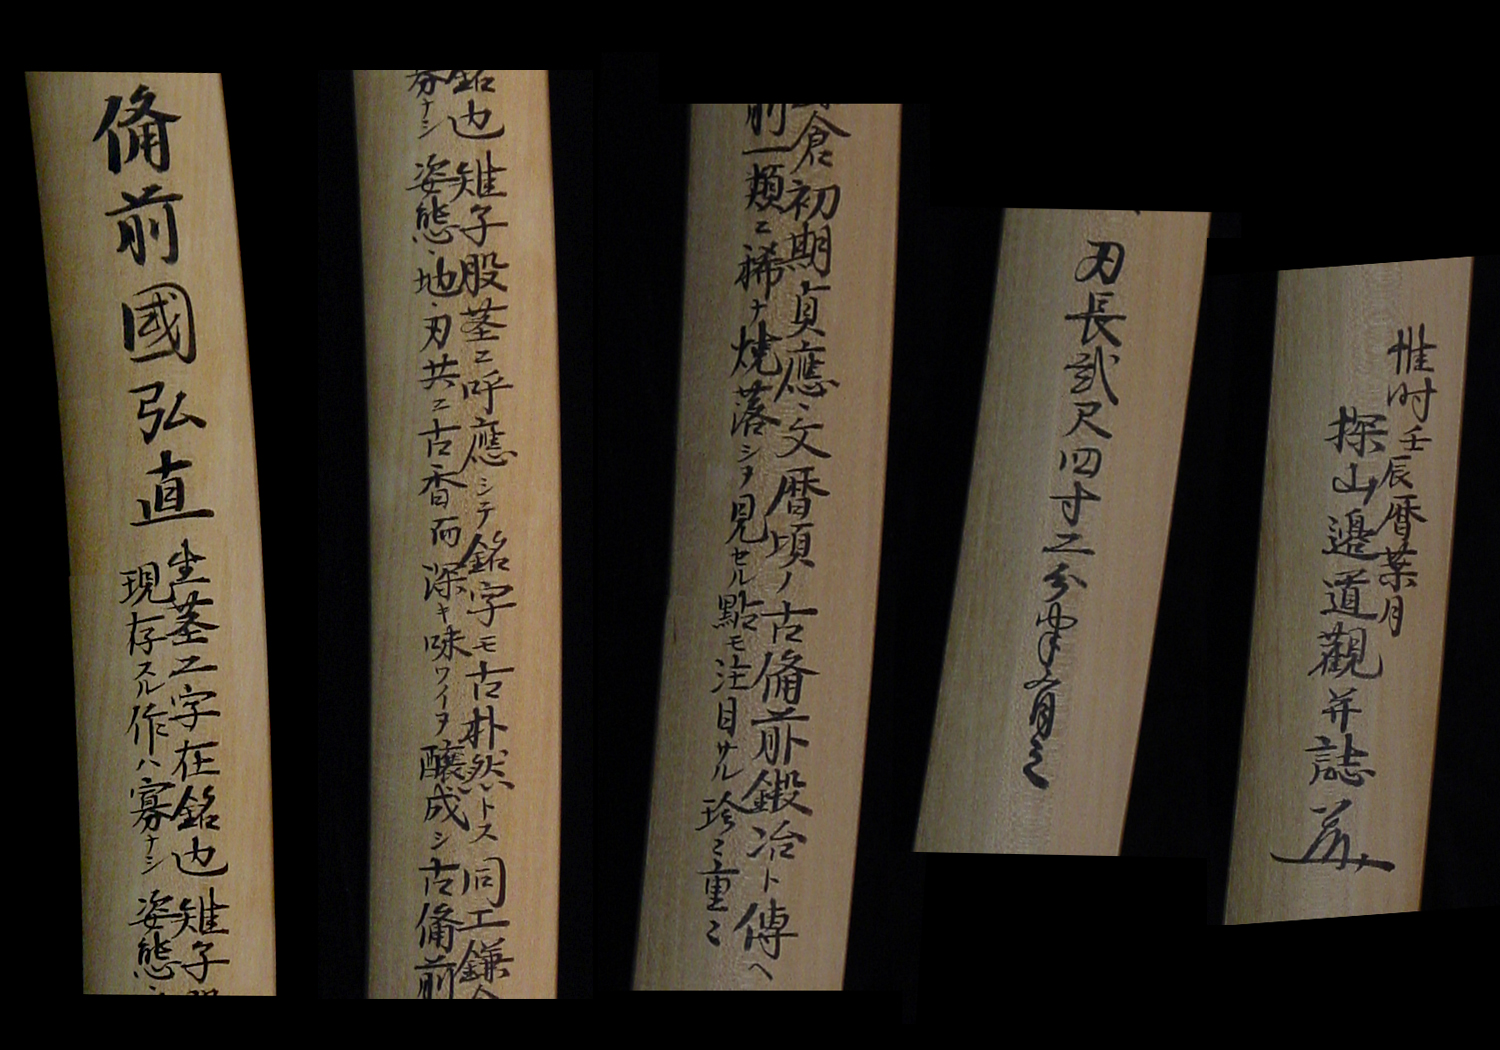 備前國弘直
生茎二字在銘也雉子股
現存スル作ハ寡ナシ姿態、
銘也雉子股茎ニ呼應シテ銘字モ古朴然トス同工鎌倉
寡ナシ姿態、地、刃共ニ古香而深キ味ワイヲ醸成シ古備前
倉初期貞應、文暦頃ノ古備前鍛冶ト傳ヘ
前一類ニ稀ナ焼落シヲ見セル點モ注目サル珍〻重〻
刃長貳尺四寸二分半有之
惟时壬辰暦葉月
探山邉道觀并誌